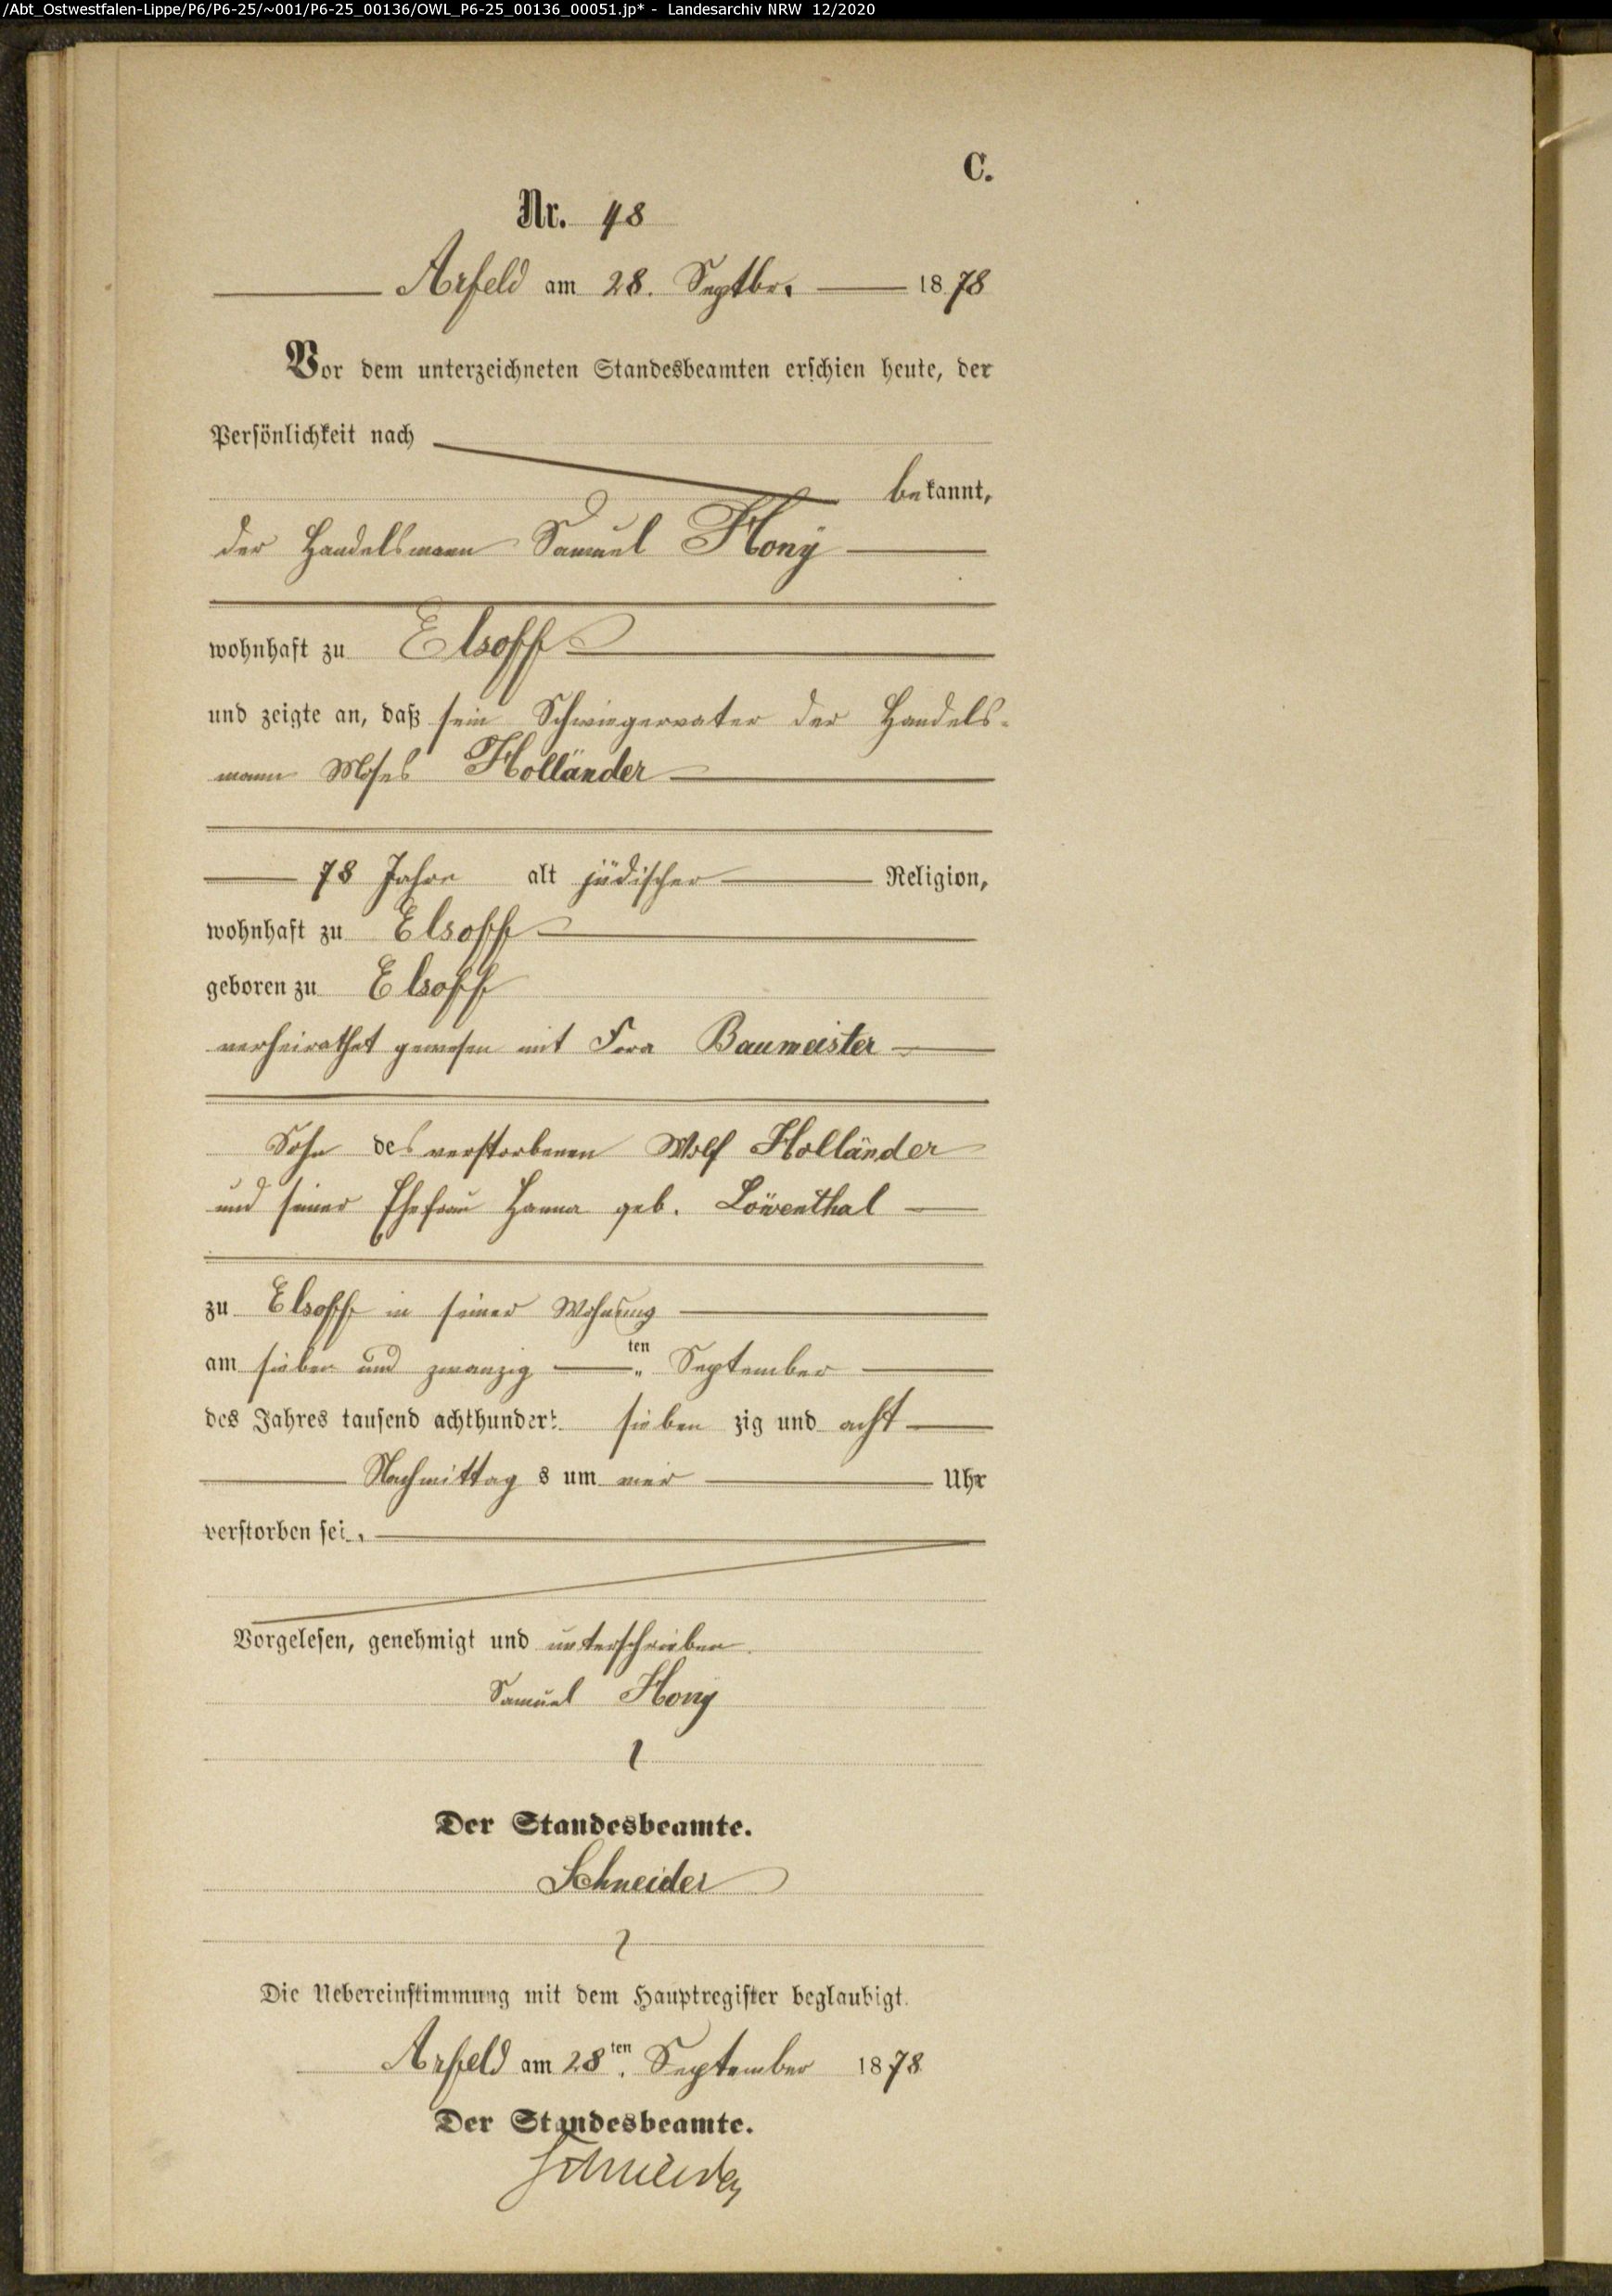 /Abt_Ostwestfalen-Lippe/P6/P6-25/~001/P6-25_00136/OWL_P6-25_00136_00051.jp* - Landesarchiv NRW 12/2020
C.
Nr. 48
Arfeld am 28. Septbr. 1878
Vor dem unterzeichneten Standesbeamten erschien heute, der
Persönlichkeit nach
bekannt,
der Handelsmann Samuel Hony
wohnhaft zu Elsoff
und zeigte an, daß sein Schwiegervater der Handels-
mann Moses Holländer
78 Jahre alt jüdischer Religion,
wohnhaft zu Elsoff
geboren zu Elsoff
verheirathet gewesen mit Baumeister
Sohn des verstorbenen Wolf Holländer
und seiner Ehefrau Hanna geb. Löwenthal
zu Elsoff in seiner Wohnung
am sieben und zwanzig ten September
des Jahres tausend achthundert sieben zig und acht
Nachmittag s um vier Uhr
verstorben sei.
Vorgelesen, genehmigt und unterschrieben.
Samuel Hony
Der Standesbeamte.
Schneider
Die Uebereinstimmung mit dem Hauptregister beglaubigt.
Arfeld am 28ten September 1878
Der Standesbeamte.
Schneider